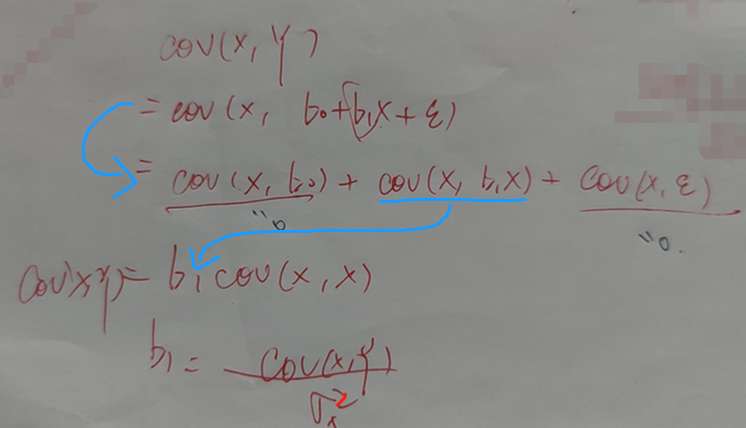 cov(x, y)
= cov(x, b₀+b₁x+ε)
= cov(x, b₀) + cov(x, b₁x) + cov(x, ε)
"0 "0.
cov(x,y) = b₁cov(x, x)
b₁ = cov(x,y) / σₓ²